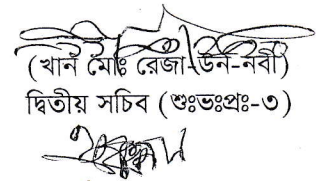 (খান মোঃ রেজা-উন-নবী)
দ্বিতীয় সচিব (শুঃভঃপ্রঃ-৩)